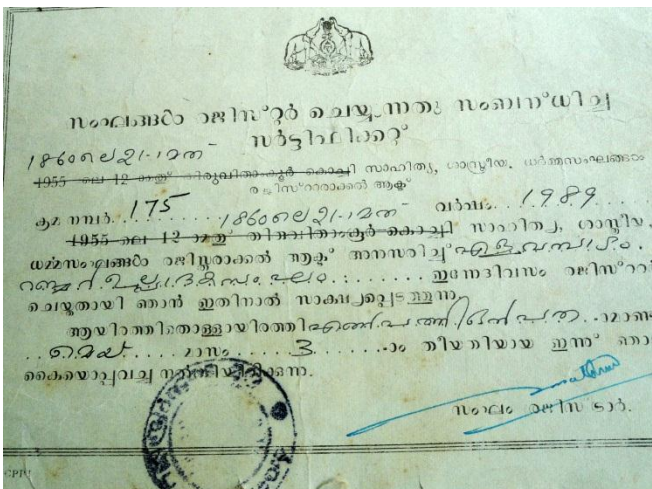 സംഘങ്ങൾ രജിസ്റ്റർ ചെയ്യുന്നതു സംബന്ധിച്ച
സർട്ടിഫിക്കറ്റ്
1860 ലെ 21-ാമത
1955 ലെ 12 ാമതു തിരുവിതാംകൂർ കൊച്ചി സാഹിത്യ, ശാസ്ത്രീയ, ധർമ്മസംഘങ്ങൾ
രജിസ്റ്ററാക്കൽ ആക്ട്
ക്രമ നമ്പർ 175 വർഷം 1989
1860 ലെ 21-ാമത
1955 ലെ 12 ാമതു തിരുവിതാംകൂർ കൊച്ചി സാഹിത്യ, ശാസ്ത്രീയ,
ധർമ്മസംഘങ്ങൾ രജിസ്റ്ററാക്കൽ ആക്ട് അനുസരിച്ച് എളവമ്പാടം
റബ്ബർ ഉല്പാദകസംഘം ഇന്നേദിവസം രജിസ്റ്റർ
ചെയ്തതായി ഞാൻ ഇതിനാൽ സാക്ഷ്യപ്പെടുത്തുന്നു.
ആയിരത്തിതൊള്ളായിരത്തി എൺപത്തി ഒൻപത് ാമാണ്ടു
മെയ് മാസം 3 ാം തീയതിയായ ഇന്ന്
കൈയൊപ്പുവച്ചു നൽകിയിരിക്കുന്നു.
സംഘം രജിസ്ട്രാർ.
CPPU